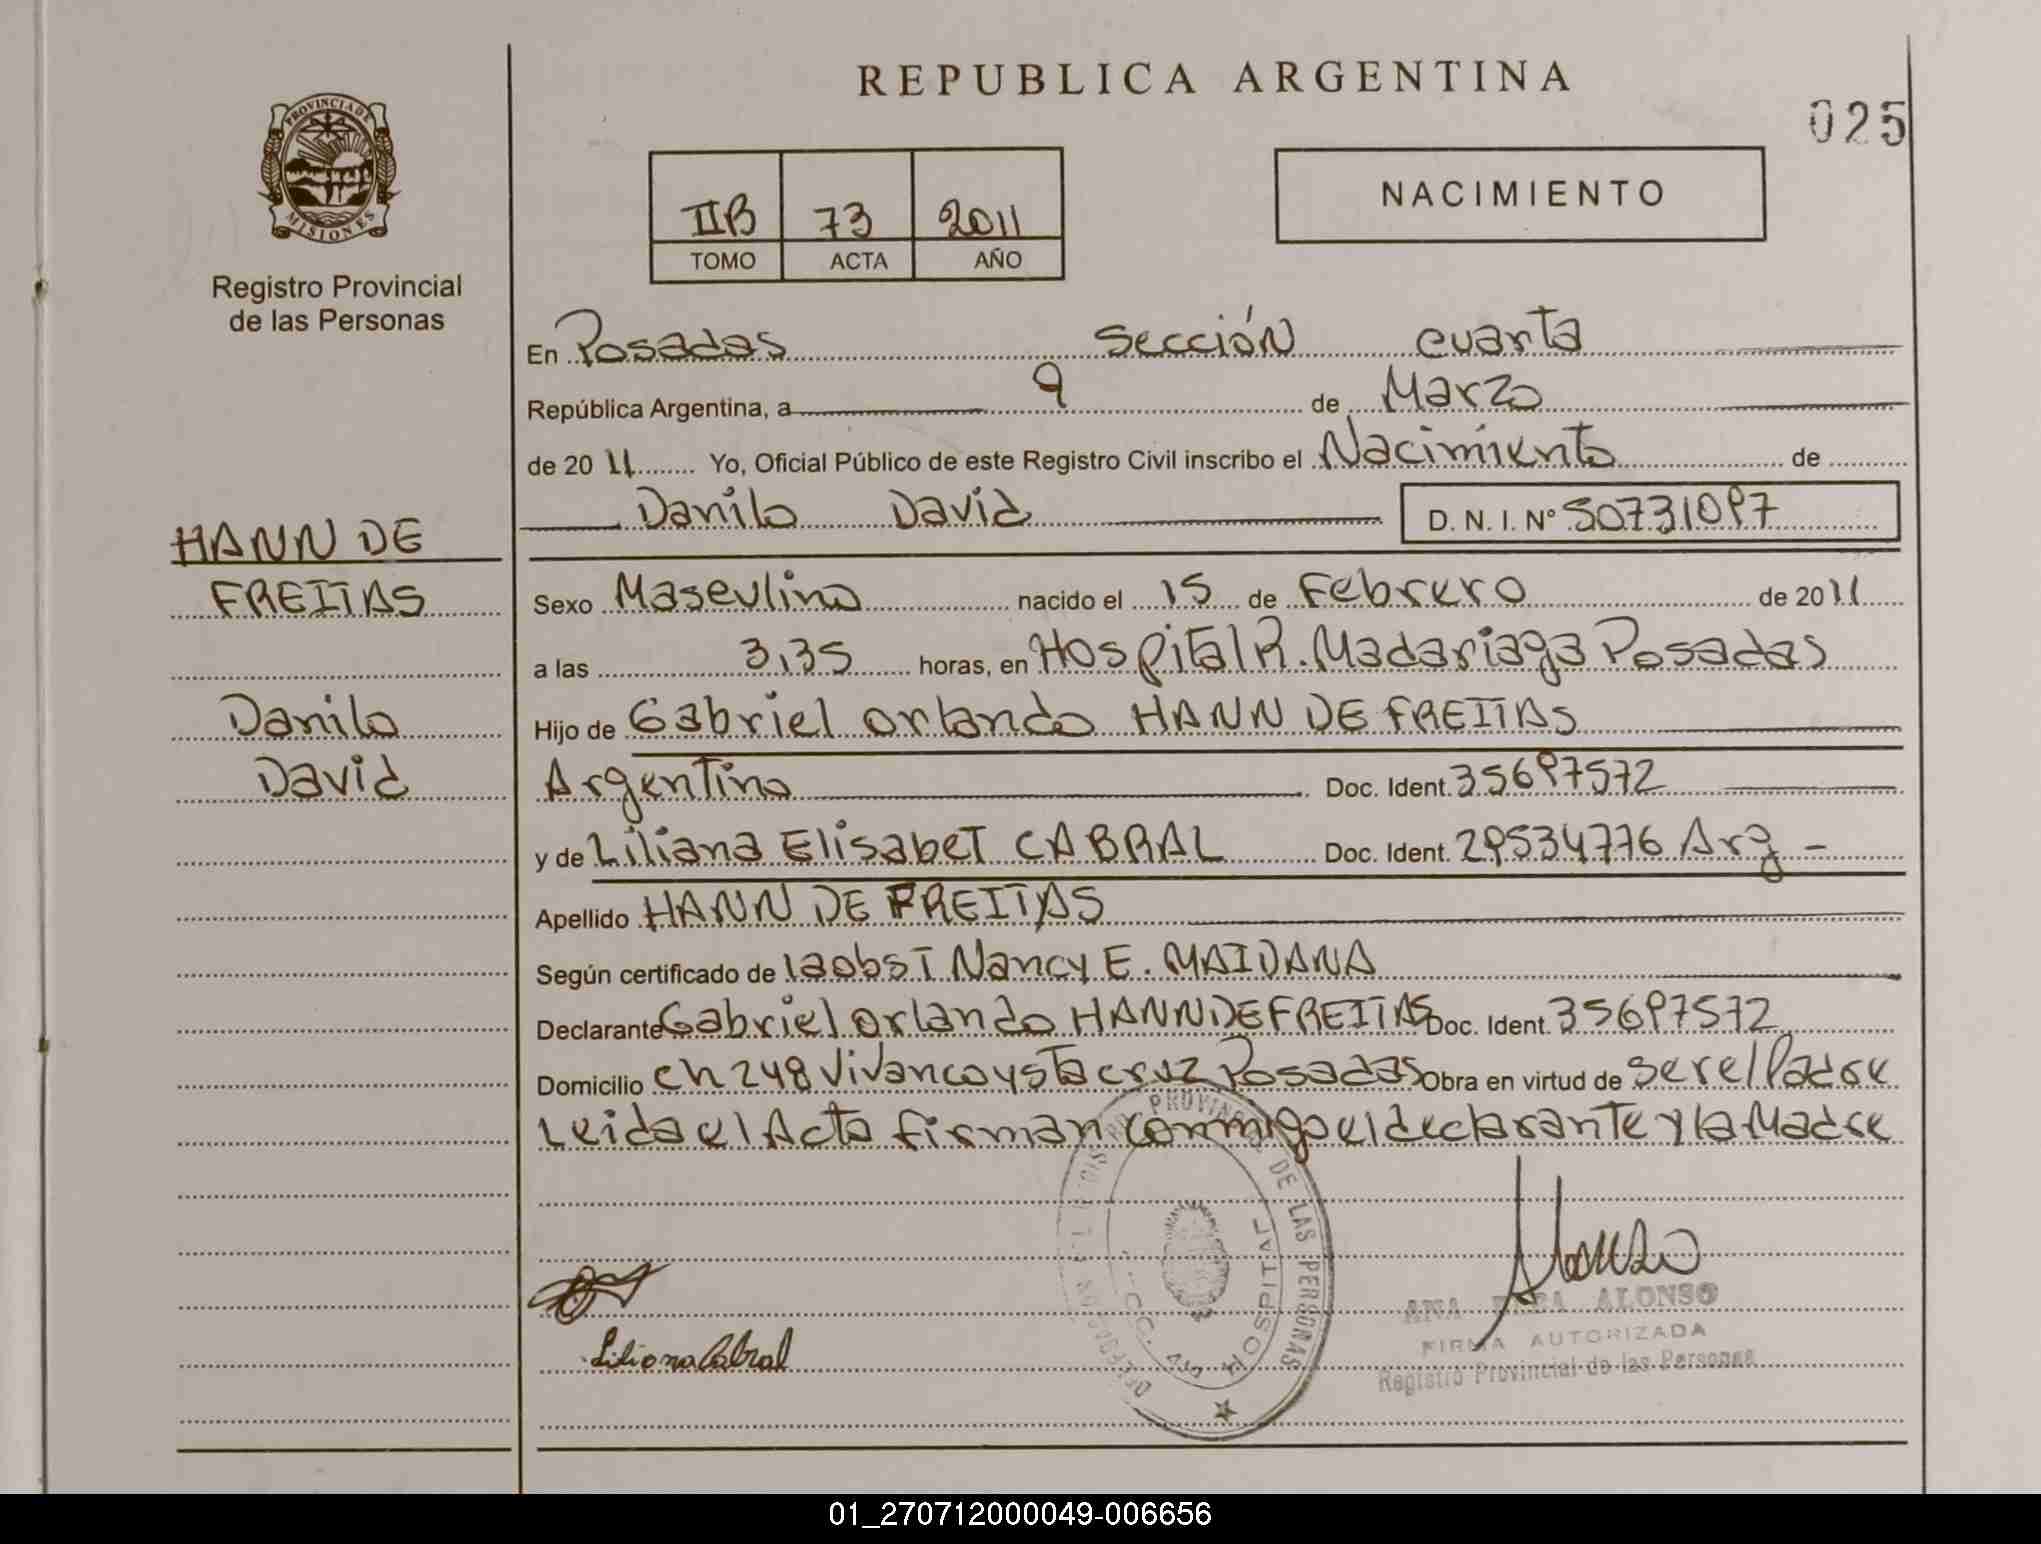 REPUBLICA ARGENTINA
025
PROVINCIA DE
MISIONES
Registro Provincial
de las Personas
IIB 73 2011
TOMO ACTA AÑO
NACIMIENTO
En Posadas Sección cuarta
República Argentina, a 9 de Marzo
de 2011 Yo, Oficial Público de este Registro Civil inscribo el Nacimiento de
Danilo David D. N. I. Nº 50731097
HANN DE
FREITAS
Danilo
David
Sexo Masculino nacido el 15 de Febrero de 2011
a las 3,35 horas, en Hospital R. Madariaga Posadas
Hijo de Gabriel Orlando HANN DE FREITAS
Argentino Doc. Ident. 35697572
y de Liliana Elisabet CABRAL Doc. Ident. 29534776 Arg -
Apellido HANN DE FREITAS
Según certificado de la obst Nancy E. MAIDANA
Declarante Gabriel Orlando HANN DE FREITAS Doc. Ident. 35697572
Domicilio ch 248 Vivanco y Sta cruz Posadas Obra en virtud de ser el Padre
Leida el Acta firman conmigo el declarante y la Madre
PROVINCIAL DE LAS PERSONAS
HOSPITAL
Liliana Cabral
ANA ALONSO
FIRMA AUTORIZADA
Registro Provincial de las Personas
01_270712000049-006656